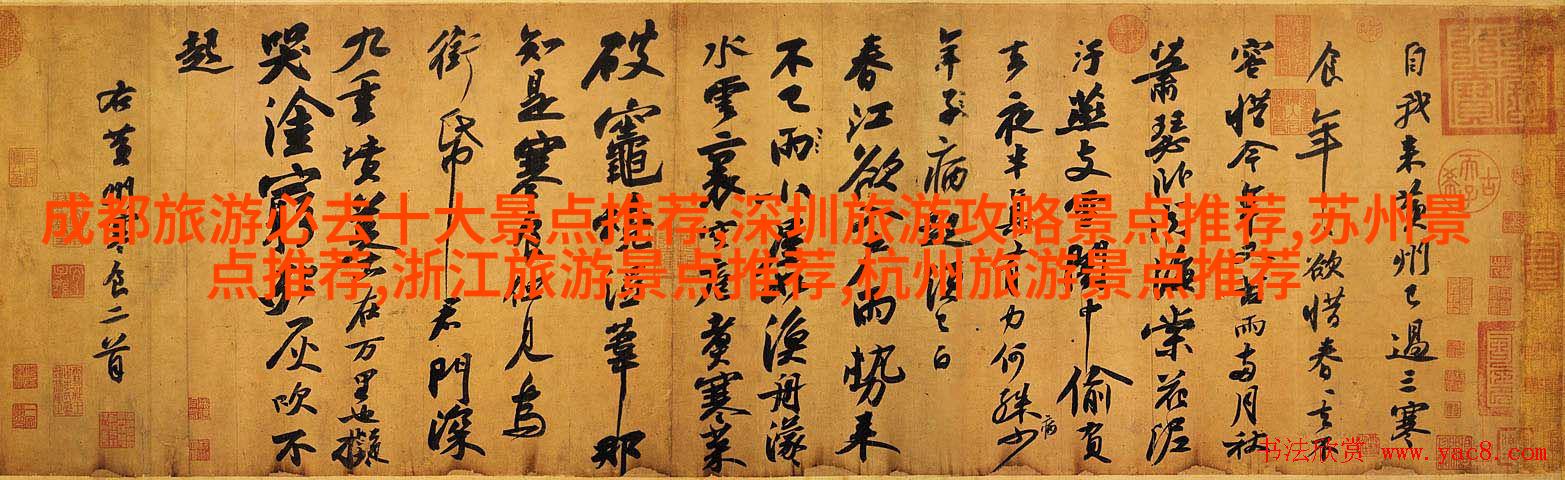 自我来黄州已過三寒
食年年欲惜春春去不
容惜今年又苦雨兩月秋
蕭瑟卧聞海棠花泥
汙燕支雪闇中偷負
去夜半真有力何殊少
年子病起頭已白
春江欲入户雨勢来
不已雨小屋如漁舟濛
水雲裏空庖煮寒菜
破竈燒濕葦那
知是寒食但見烏
銜帋君門深
九重墳墓在万里也擬
哭塗窮死灰吹不
起
右黄州寒食二首
成都旅游必去十大景点推荐,深圳旅游攻略景点推荐,苏州景
点推荐,浙江旅游景点推荐,杭州旅游景点推荐
书法欣赏 www.yac8.com